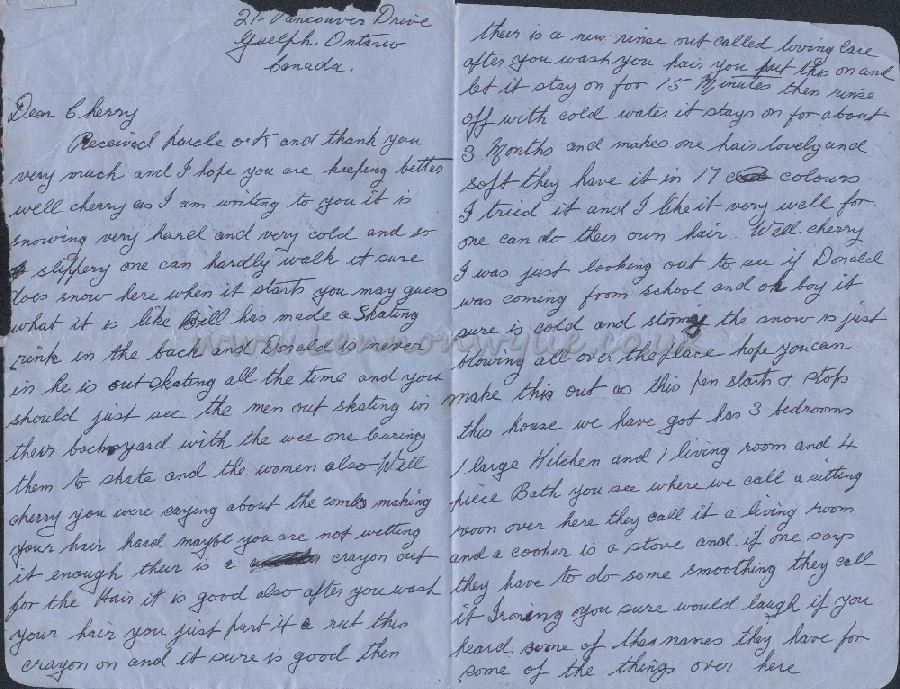 21- Vancouver Drive
Guelph. Ontario
Canada.
Dear Cherry
Received parcle o.k and thank you
very much and I hope you are keeping better
well cherry as I am writing to you it is
snowing very hard and very cold and so
slippery one can hardly walk it sure
does snow here when it starts you may guess
what it is like Bill has made a Skating
rink in the back and Donald is never
in he is out skating all the time and you
should just see the men out skating in
their backyard with the wee one learing
them to skate and the women also Well
cherry you were saying about the combs making
your hair hard maybe you are not wetting
it enough their is a crayon out
for the Hair it is good also after you wash
your hair you just part it & rut this
crayon on and it sure is good then
their is a new rinse out called loving Care
after you wash you hair you put this on and
let it stay on for 15 Minutes then rinse
off with cold water it stays on for about
3 Months and makes one hair lovely and
soft they have it in 17 colours
I tried it and I like it very well for
one can do their own hair. Well cherry
I was just looking out to see if Donald
was coming from school and oh boy it
sure is cold and stormy the snow is just
blowing all over the place hope you can
make this out as this pen starts & stops
this house we have got has 3 bedrooms
1 large Kitchen and 1 living room and 4
piece Bath you see where we call a sitting
room over here they call it a living room
and a cooker is a stove and if one says
they have to do some smoothing they call
it Ironing you sure would laugh if you
heard some of the names they have for
some of the things over here